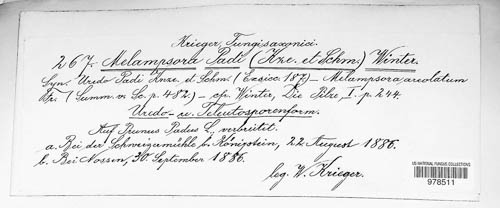 Krieger, Fungi saxonici.
267. Melampsora Padi (Kze. et Schm.) Winter.
Syn. Uredo Padi Knze. et Schm. (Exsicc. 187) – Melampsora areolatum
Fr. (Summ. v. Sc. p. 482.) – cfr. Winter, Die Pilze, I. p. 244.
Uredo- u. Teleutosporenform.
Auf Prunus Padus L. verbreitet.
a. Bei der Schweizermühle b. Königstein, 22. August 1886.
b. Bei Nossen, 30. September 1886.
leg. W. Krieger.
US NATIONAL FUNGUS COLLECTIONS
978511